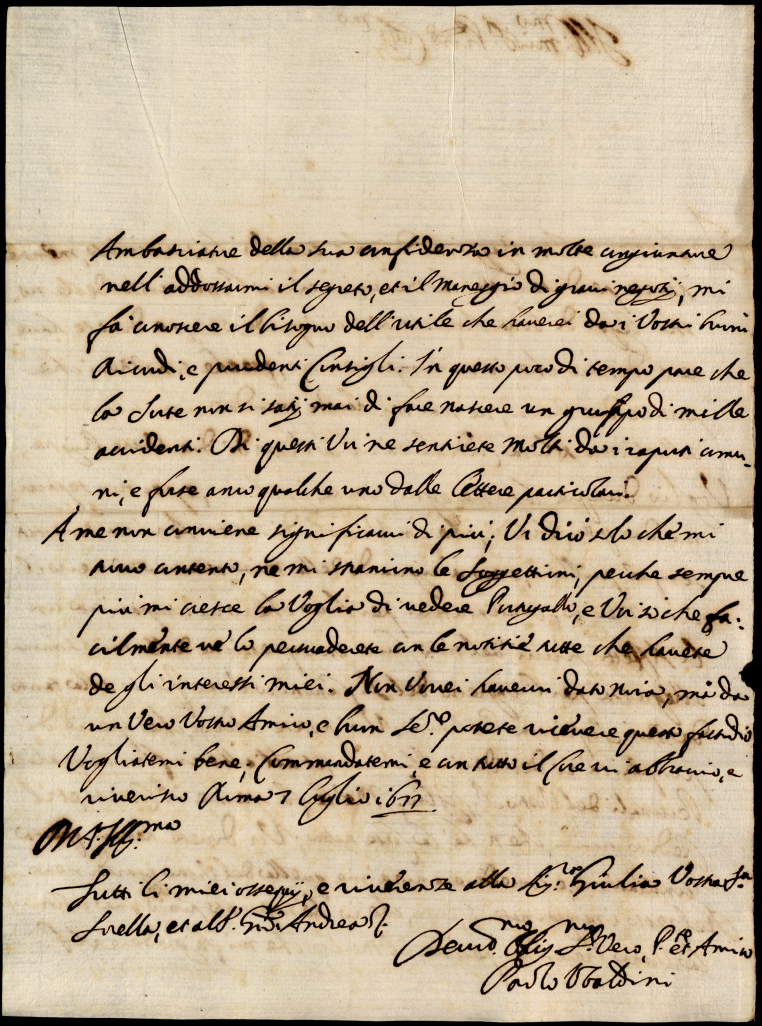 Ambasciatore della sua confidenza in molte congiunture
nell'addossarmi il segreto, et il maneggio di gravi negotij, mi
fà conoscere il bisogno dell'utile che haverei da i Vostri buoni
Ricordi, e prudenti Consigli. In questo poco di tempo pare che
la Sorte non si satij mai di fare nascere un gruppo di mille
accidenti. Di questi Voi ne sentirete molti da i rapporti comu-
ni, e forse anco qualche uno dalle lettere particolari.
A me non conviene significarvi di più; Vi dirò solo che mi
trovo contento, ne mi stancano le, perche sempre
più mi cresce la Voglia di vedere Portogallo, e Voi sò che fa:
cilmente ve lo persuaderete con le notitie tutte che havete
degli interessi miei. Non vorrei havervi dato noia, mà da
un Vero Vostro Amico, e buon Se.re potete ricevere questo fastidio
Vogliatemi bene, Commandatemi, e con tutto il Core vi abbraccio, e
riverisco Roma 7 luglio 1677
Tutti li miei ossequij, e riverenze alla Sig.ra Giulia Vostra S.ra
Sorella, et al S.r Andrea
Devo.mo Oblig.mo Ser. Vero, et Amico
Paolo Ubaldini